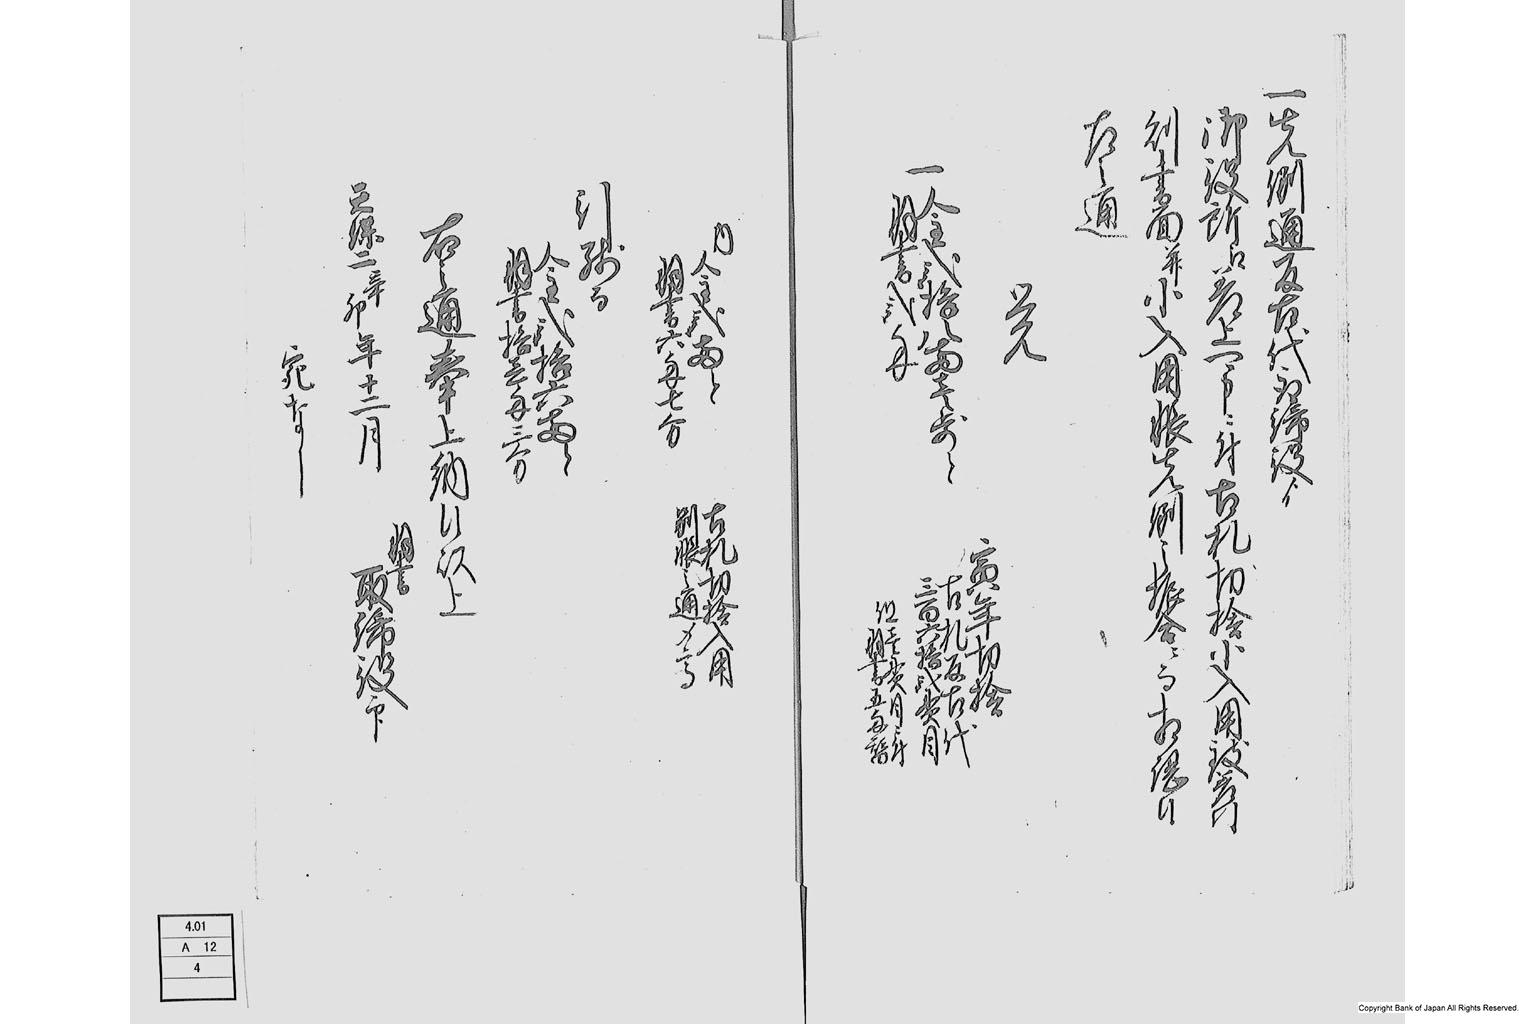 一先例通反古代取締役ゟ
御役所江差上可申ニ付古札切捨小入用請書
創書面并小入用帳先例之振合ニ而相認
左之通
覚
一金弐拾八両壱歩ト
銀弐匁
寅年切捨
古札反古代
三百六拾弐貫目
但壱貫目ニ付
銀五匁
内
金弐両ト
銀六匁七分
古札切捨入用
別帳之通
引残而
金弐拾六両ト
銀拾三匁三分
右之通奉上納候以上
天保二辛卯年十二月
取締役印
宛なし
4.01
A 12
4
Copyright Bank of Japan All Rights Reserved.